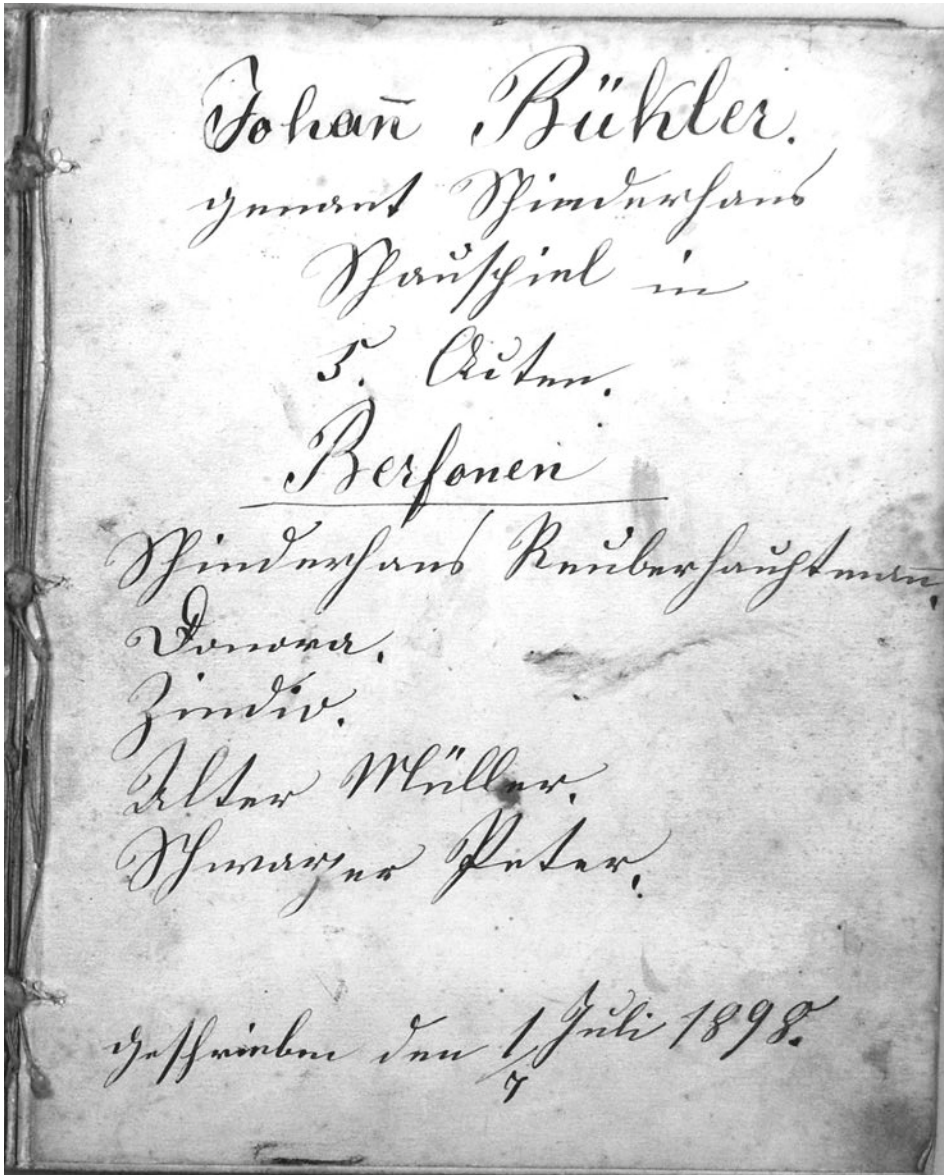 Johan̄ Bükler.
genant Schinderhans
Schauspiel in
5. Acten.
Bersonen
Schinderhans Reuberhauptman̄.
Donora.
Zindio.
Alter Müller.
Schwarzer Peter.
geschrieben den 1/7 Juli 1898.